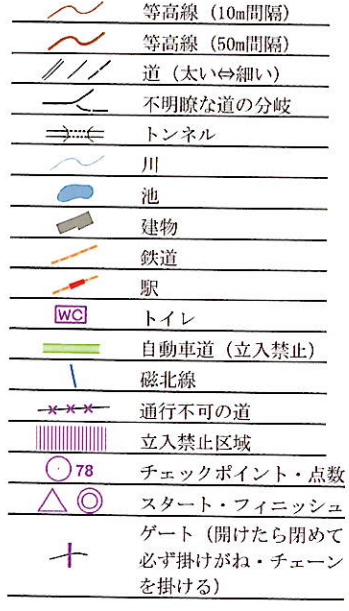 等高線（10m間隔）
等高線（50m間隔）
道（太い⇔細い）
不明瞭な道の分岐
トンネル
川
池
建物
鉄道
駅
WC トイレ
自動車道（立入禁止）
磁北線
通行不可の道
立入禁止区域
78 チェックポイント・点数
スタート・フィニッシュ
ゲート（開けたら閉めて
必ず掛けがね・チェーン
を掛ける）